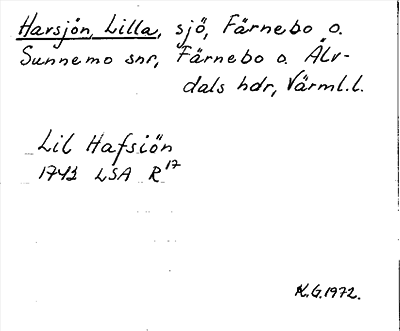 Harsjön, Lilla, sjö, Färnebo o.
Sunnemo snr, Färnebo o. Älv-
dals hdr, Värml.l.
Lil Hafsiön
1743 LSA R17
K.G.1972.